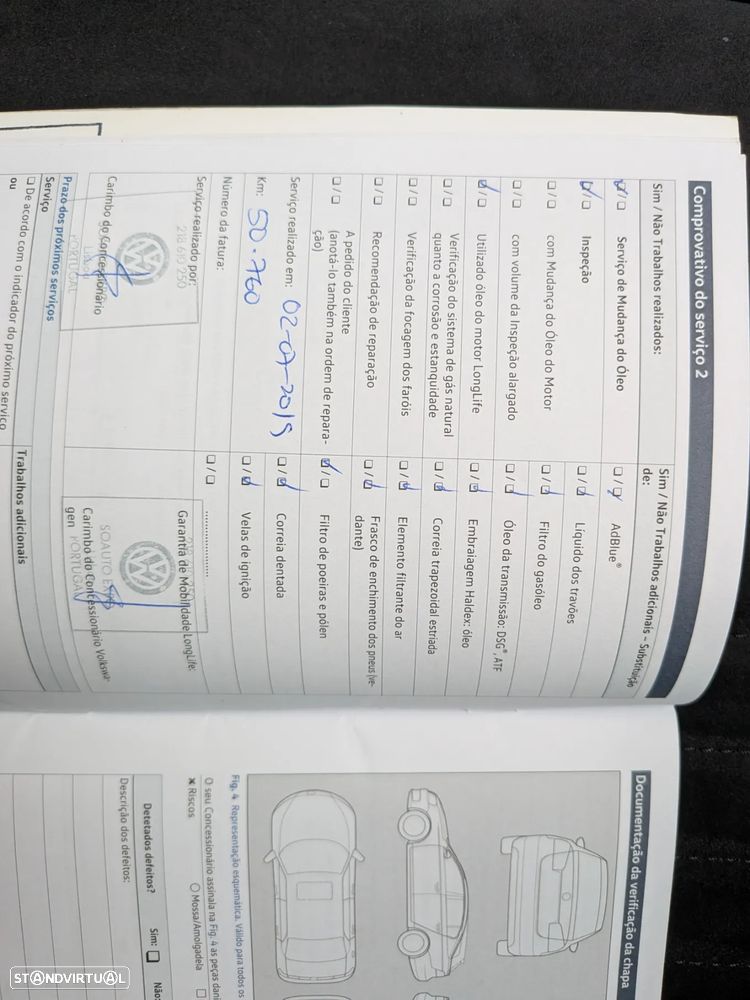 Comprovativo do serviço 2
Sim / Não Trabalhos realizados:
☑ / ☐ Serviço de Mudança do Óleo
☑ / ☐ Inspeção
☐ / ☐ com Mudança do Óleo do Motor
☐ / ☐ com volume da Inspeção alargado
☑ / ☐ Utilizado óleo do motor LongLife
☐ / ☐ Verificação do sistema de gás natural
quanto à corrosão e estanquidade
☐ / ☐ Verificação da focagem dos faróis
☐ / ☐ Recomendação de reparação
☐ / ☐ A pedido do cliente
(anotá-lo também na ordem de repara-
ção)
Serviço realizado em: 02-07-2019
Km: 50.760
Número da fatura:
Serviço realizado por:
PORTUGAL
Carimbo do Concessionário
Prazo dos próximos serviços
Serviço
☐ De acordo com o indicador do próximo serviço
ou
Sim / Não Trabalhos adicionais – Substituição
de:
☐ / ☑ AdBlue®
☐ / ☑ Líquido dos travões
☐ / ☑ Filtro do gasóleo
☐ / ☑ Óleo da transmissão: DSG®, ATF
☐ / ☑ Embraiagem Haldex: óleo
☐ / ☑ Correia trapezoidal estriada
☐ / ☑ Elemento filtrante do ar
☐ / ☑ Frasco de enchimento dos pneus (ve-
dante)
☑ / ☐ Filtro de poeiras e pólen
☐ / ☑ Correia dentada
☐ / ☑ Velas de ignição
☐ / ☐ ........................
Garantia de Mobilidade LongLife:
SOAUTO
PORTUGAL
Carimbo do Concessionário Volkswa-
gen
Trabalhos adicionais
Documentação da verificação da chapa
Fig. 4 Representação esquemática. Válido para todos os
O seu Concessionário assinala na Fig. 4 as peças dani
✖ Riscos
○ Mossa/Amolgadela
☐
Detetados defeitos? Sim: ☐ Não:
Descrição dos defeitos:
STANDVIRTUAL